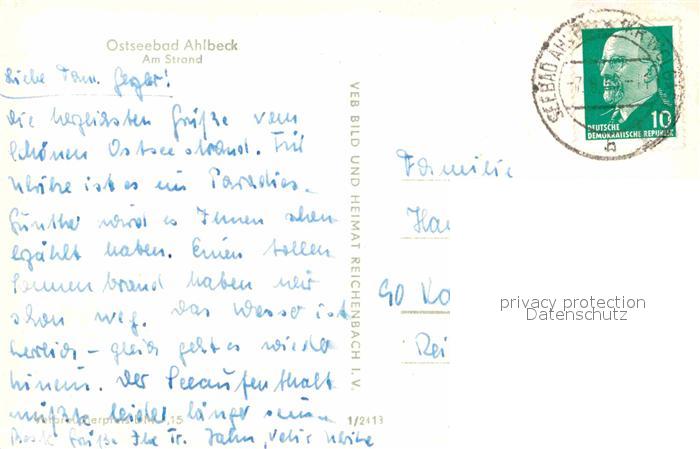 Ostseebad Ahlbeck
Am Strand
Liebe Fam. Geger!
die herzlichsten Grüße vom
schönen Ostseestrand. Für
Ulrike ist es ein Paradies.
Günther wird es Ihnen schon
erzählt haben. Einen tollen
Sonnenbrand haben wir
schon weg. Das Wasser ist
herrlich – gleich geht es wieder
hinein. Der Seeaufenthalt
müßte leider länger sein.
Beste Grüße Ihre Fr. Jahn, Ulrike
VEB BILD UND HEIMAT REICHENBACH I. V.
1/2413
SEEBAD AHLBECK
DEUTSCHE
DEMOKRATISCHE REPUBLIK
10
b
Familie
Ha
90 Ka
Rei
privacy protection
Datenschutz